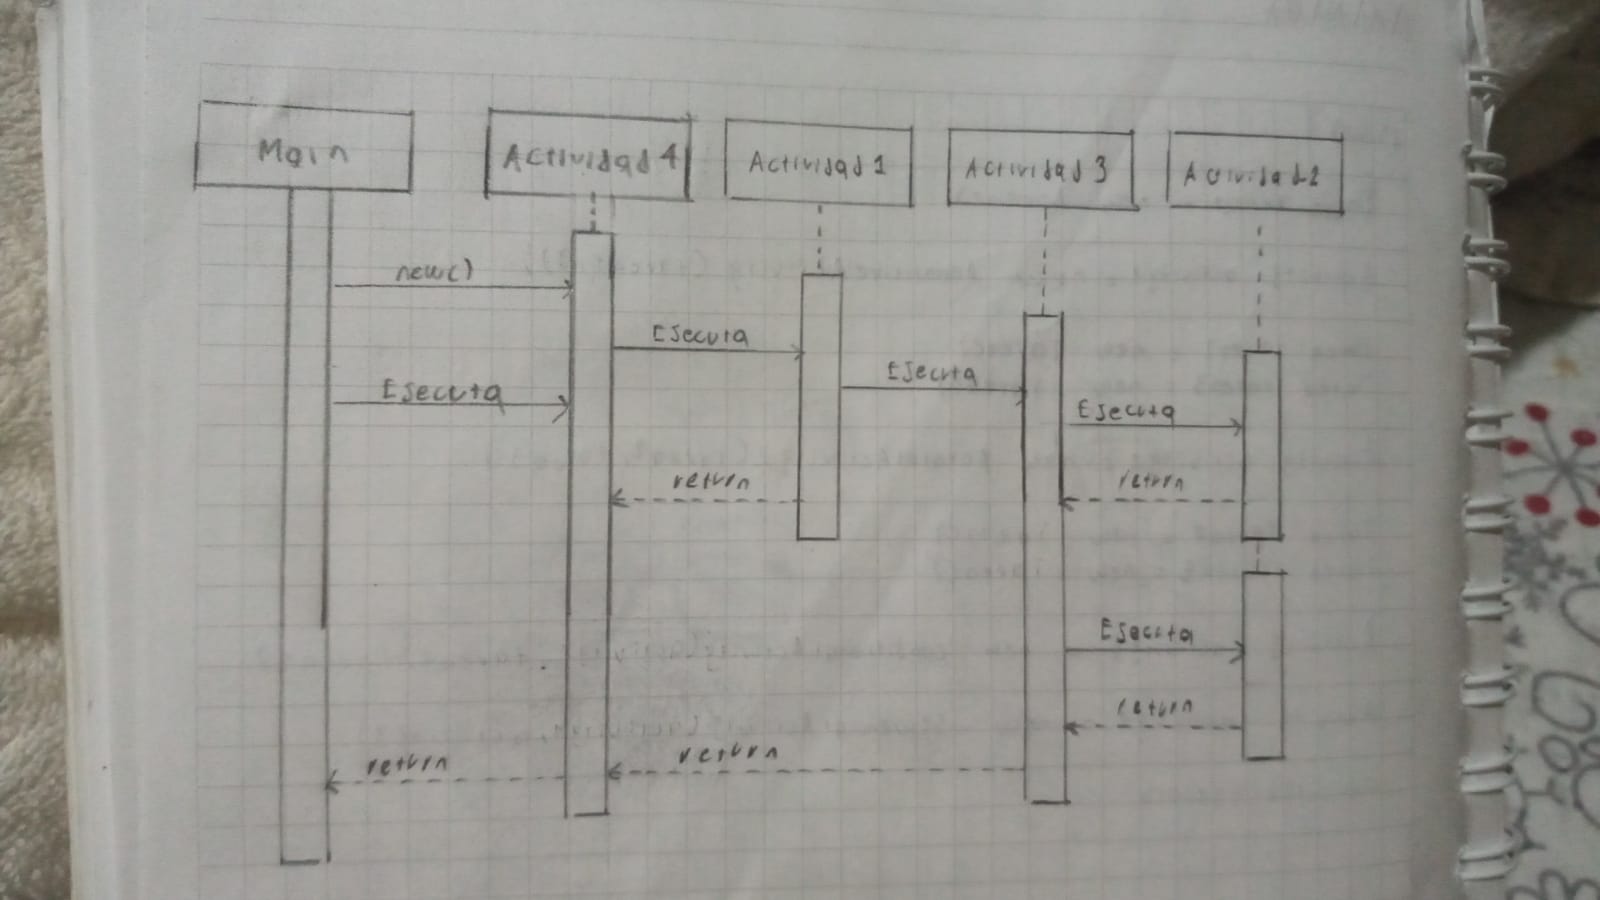 Main
Actividad 4
Actividad 1
Actividad 3
Actividad 2
new()
Ejecuta
Ejecuta
Ejecuta
Ejecuta
return
return
Ejecuta
return
return
return